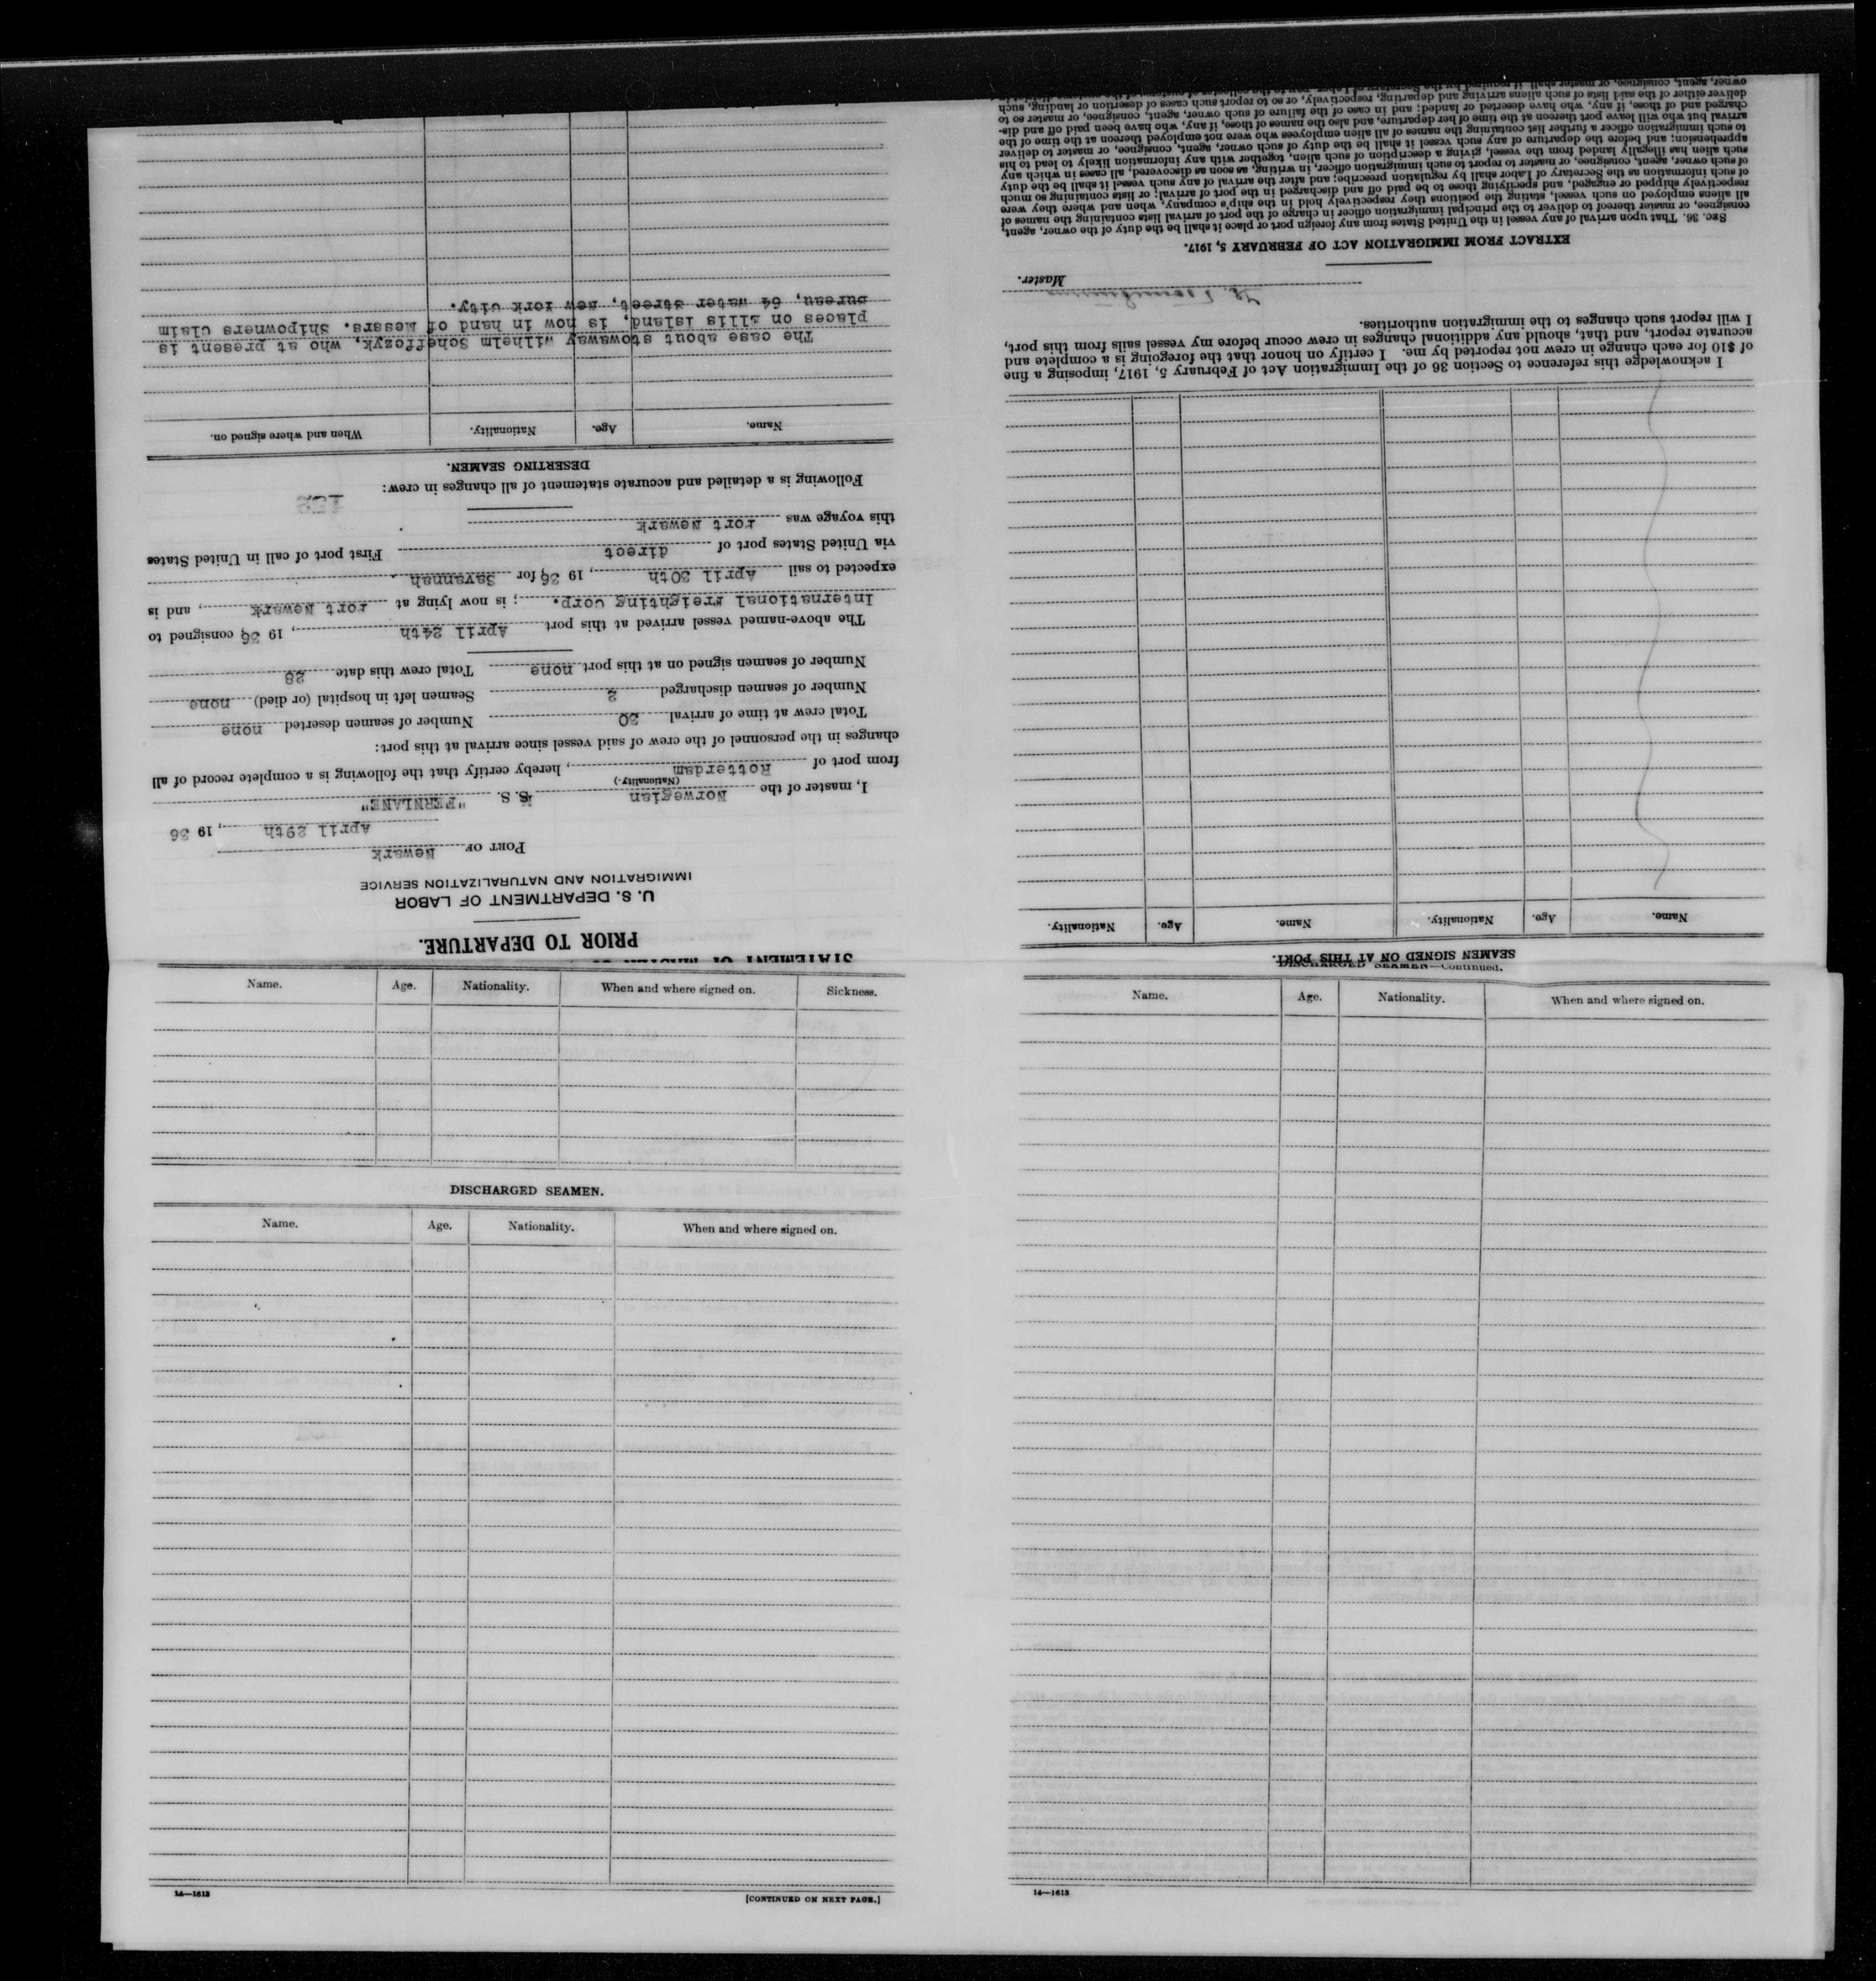 STATEMENT OF MASTER OF
PRIOR TO DEPARTURE.
U. S. DEPARTMENT OF LABOR
IMMIGRATION AND NATURALIZATION SERVICE
PORT OF Newark
April 29th, 19 36
I, master of the Norwegian S. S. "FERNLANE"
(Nationality.)
from port of Rotterdam, hereby certify that the following is a complete record of all
changes in the personnel of the crew of said vessel since arrival at this port:
Total crew at time of arrival 30 Number of seamen deserted none
Number of seamen discharged 2 Seamen left in hospital (or died) none
Number of seamen signed on at this port none Total crew this date 28
The above-named vessel arrived at this port April 24th, 19 36, consigned to
International Freighting Corp.; is now lying at Port Newark, and is
expected to sail April 30th, 19 36, for Savannah
via United States port of direct First port of call in United States
this voyage was Port Newark
Following is a detailed and accurate statement of all changes in crew:
DESERTING SEAMEN.
Name. Age. Nationality. When and where signed on.
The case about stowaway Wilhelm Scheffczyk, who at present is
places on Ellis Island, is now in hand of Messrs. Shipowners Claim
Bureau, 64 Water Street, New York City.
SEAMEN SIGNED ON AT THIS PORT.
Name. Age. Nationality. Name. Age. Nationality.
I acknowledge this reference to Section 36 of the Immigration Act of February 5, 1917, imposing a fine
of $10 for each change in crew not reported by me. I certify on honor that the foregoing is a complete and
accurate report, and that, should any additional changes in crew occur before my vessel sails from this port,
I will report such changes to the immigration authorities.
Master.
EXTRACT FROM IMMIGRATION ACT OF FEBRUARY 5, 1917.
SEC. 36. That upon arrival of any vessel in the United States from any foreign port or place it shall be the duty of the owner, agent,
consignee, or master thereof to deliver to the principal immigration officer in charge of the port of arrival lists containing the names of
all aliens employed on such vessel, stating the positions they respectively hold in the ship's company, when and where they were
respectively shipped or engaged, and specifying those to be paid off and discharged in the port of arrival; or lists containing so much
of such information as the Secretary of Labor shall by regulation prescribe; and after the arrival of any such vessel it shall be the duty
of such owner, agent, consignee, or master to report to such immigration officer, in writing, as soon as discovered, all cases in which any
such alien has illegally landed from the vessel, giving a description of such alien, together with any information likely to lead to his
apprehension; and before the departure of any such vessel it shall be the duty of such owner, agent, consignee, or master to deliver
to such immigration officer a further list containing the names of all alien employees who were not employed thereon at the time of the
arrival but who will leave port thereon at the time of her departure, and also the names of those, if any, who have been paid off and dis-
charged and of those, if any, who have deserted or landed; and in case of the failure of such owner, agent, consignee, or master so to
deliver either of the said lists of such aliens arriving and departing, respectively, or so to report such cases of desertion or landing, such
owner, agent, consignee, or master shall, if required by the Secretary of Labor, pay to the collector of customs of the customs district in
Name. Age. Nationality. When and where signed on. Sickness.
DISCHARGED SEAMEN.
Name. Age. Nationality. When and where signed on.
14—1613
[CONTINUED ON NEXT PAGE.]
DISCHARGED SEAMEN—Continued.
Name. Age. Nationality. When and where signed on.
14—1613